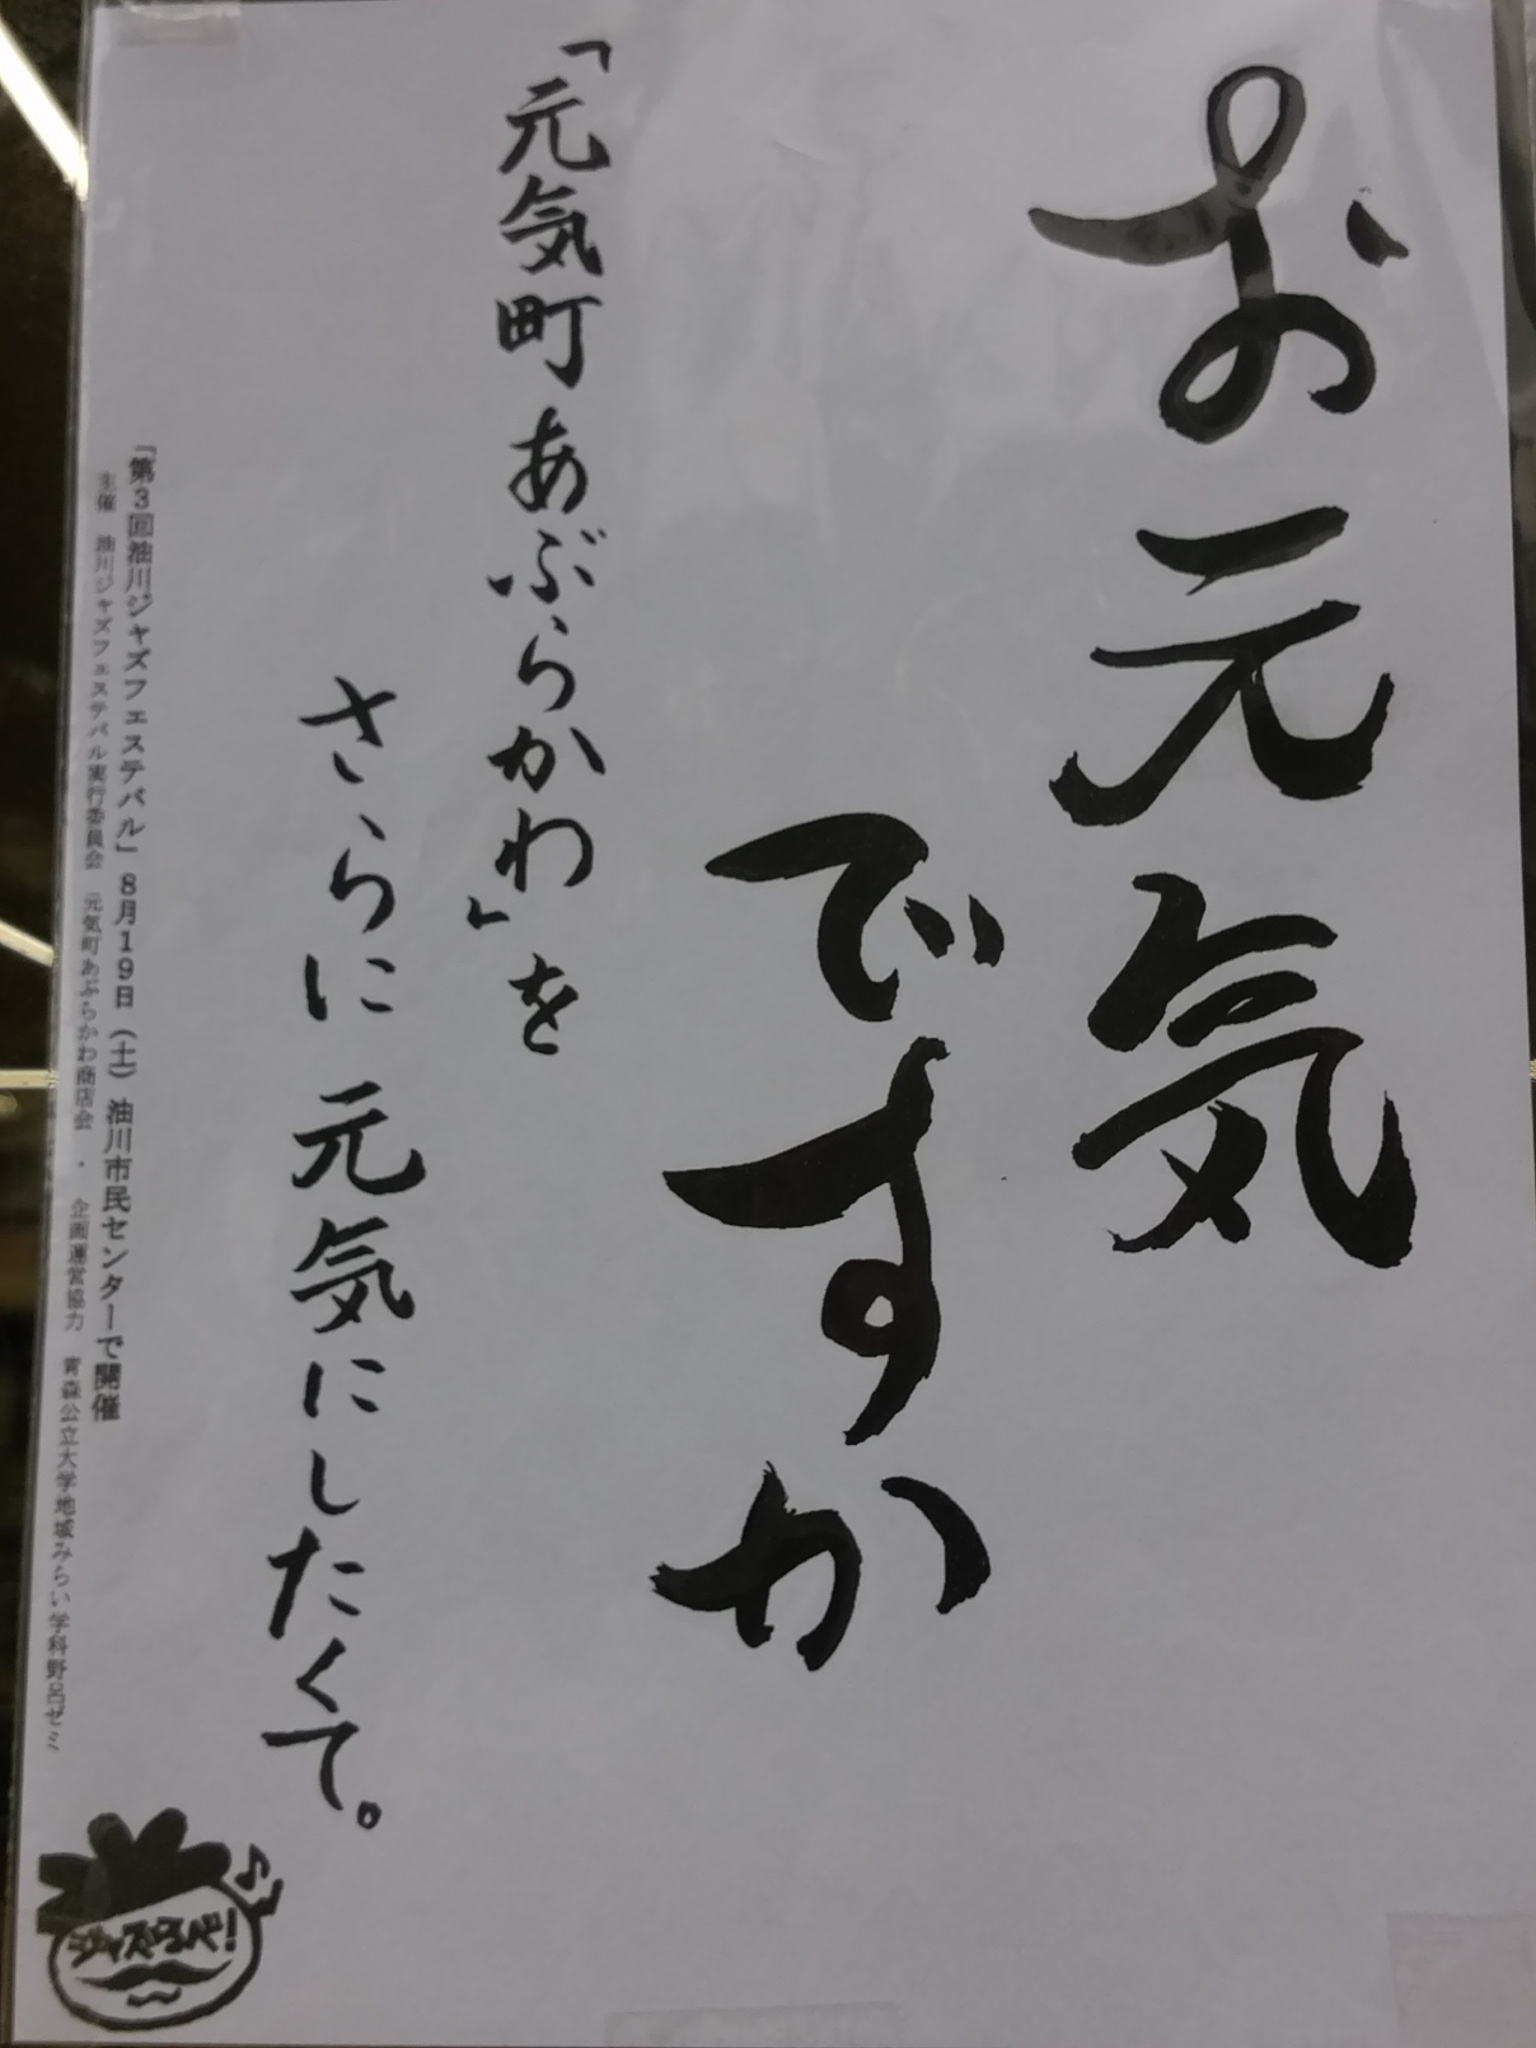 お元気
ですか
「元気町あぶらかわ」を
さらに元気にしたくて。
「第3回油川ジャズフェステバル」8月19日(土)油川市民センターで開催
主催 油川ジャズフェステバル実行委員会 元気町あぶらかわ商店会 ・ 企画運営協力 青森公立大学地域みらい学科野呂ゼミ